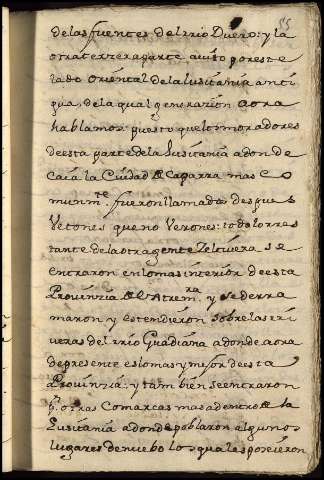 55
de las fuentes del rrio Duero: y la
otra terzera parte avito por este
lado oriental de la lusitania anti
gua, de la qual gens razion aora
hablamos: puesto que los moradores
de esta parte de la Lusitania adonde
Caia la Ciudad de Caparra mas Co
munmte. fueron llamados despues
Vetones que no Verones: todo lo rres
tante de la otra gente Zeltivera se
entraron en lo mas interior de esta
Provinzia de Estremra. y se derra
maron y estendieron sobre las rri
veras del rrio Guadiana adonde aora
de presente es lo mas y mejor de esta
Provinzia: y tambien se entraron
pr. otras Comarcas mas adentro de la
Lusitania adonde poblaron algunos
lugares de nuebo los quales posieron